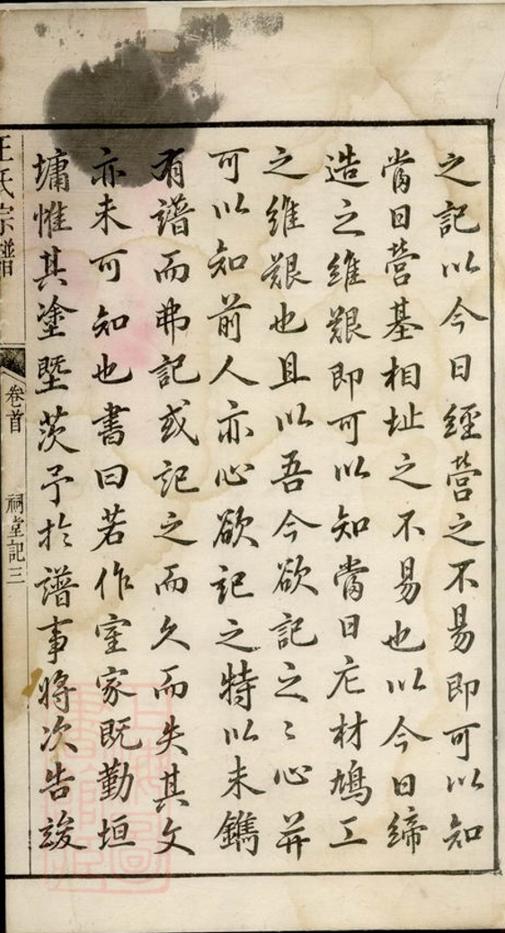 之記以今日經營之不易即可以知
當日營基相址之不易也以今日締
造之維艱即可以知當日庀材鳩工
之維艱也且以吾今欲記之〻心并
可以知前人亦心欲記之特以未鐫
有譜而弗記或記之而久而失其文
亦未可知也書曰若作室家既勤垣
墉惟其塗塈茨予於譜事將次告竣
王氏宗譜
卷首
祠堂記三